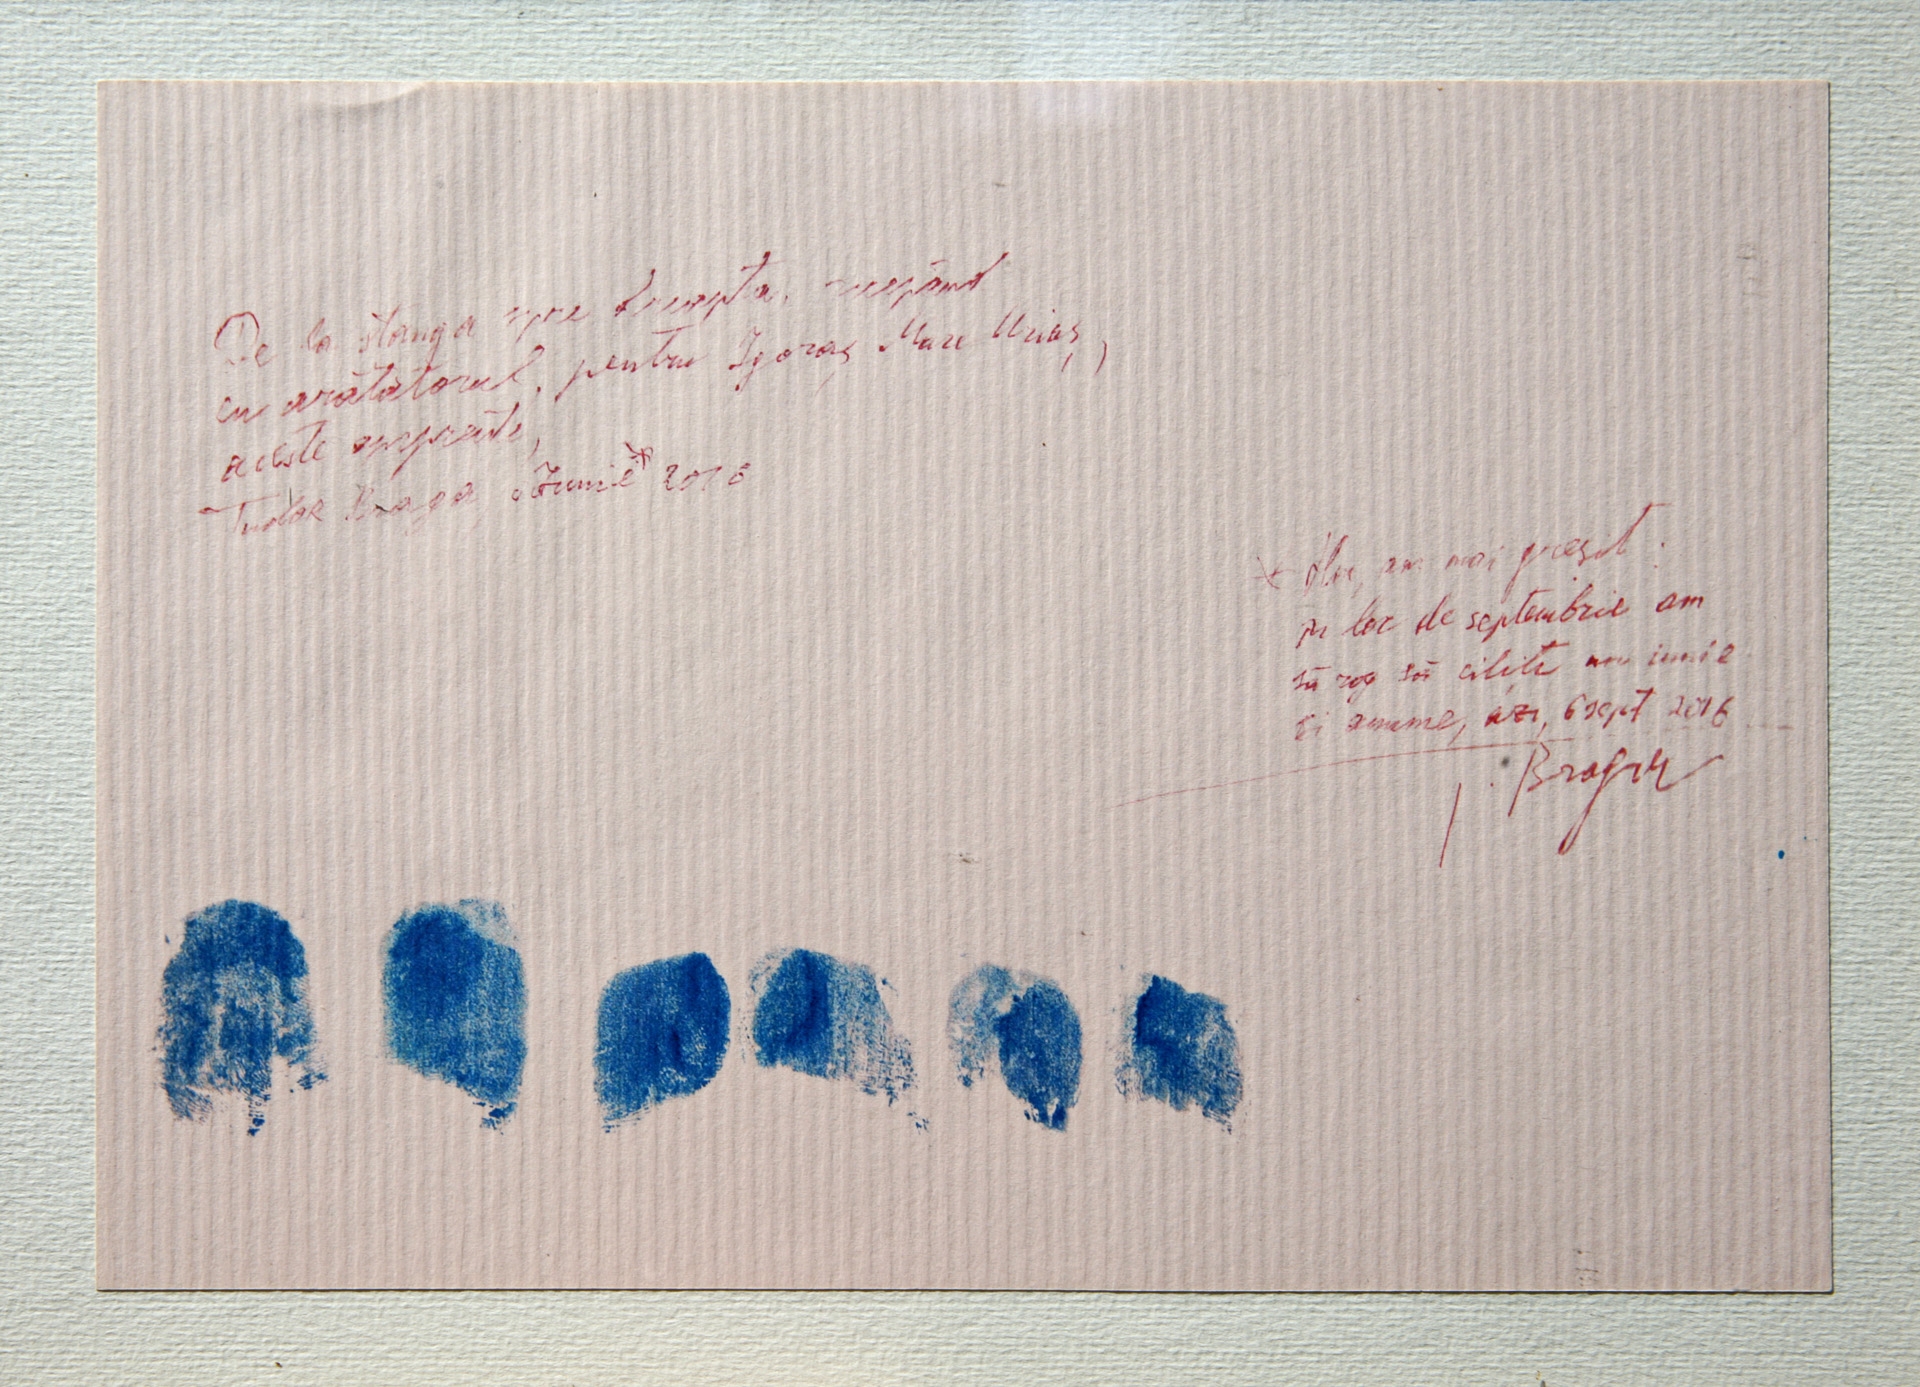 De la stanga spre dreapta, incepând
cu arătătorul, pentru Igoraș Mare Uriaș,
aceste amprente,
Tudor Braga, Iunie* 2016
* am mai greșit.
în loc de septembrie am
să rog să citiți iunie
și anume, azi, 6 sept 2016
Braga